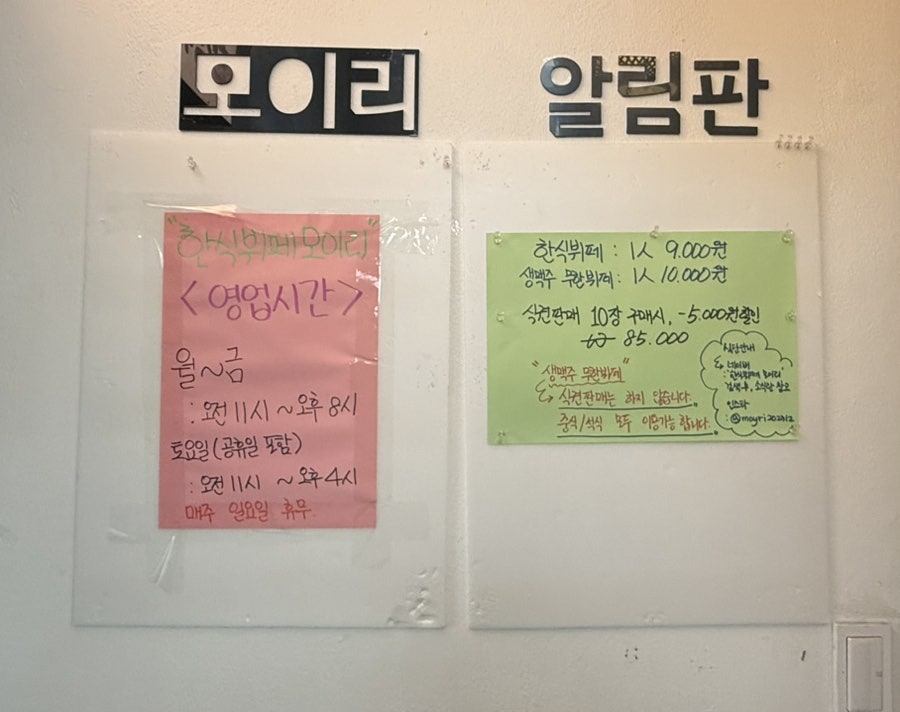 모이리
알림판
"한식뷔페 모이리"
<영업시간>
월~금
: 오전 11시 ~ 오후 8시
토요일 (공휴일 포함)
: 오전 11시 ~ 오후 4시
매주 일요일 휴무.
한식뷔페 : 1人 9.000원
생맥주 무한뷔페 : 1人 10.000원
식권판매 10장 구매시, -5.000원 할인
85.000
"생맥주 무한뷔페"
식권판매는 하지 않습니다.
중식/석식 모두 이용가능 합니다.
식단안내
네이버
: "한식뷔페 모이리"
검색 후, 소식란 참고
인스타
: @moyri202212